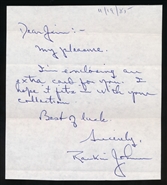 11/19/85
Dear Jim:-
My pleasure.
I'm enclosing an
extra card for you. I
hope it fits in with your
collection
Best of luck.
Sincerely,
Rankin